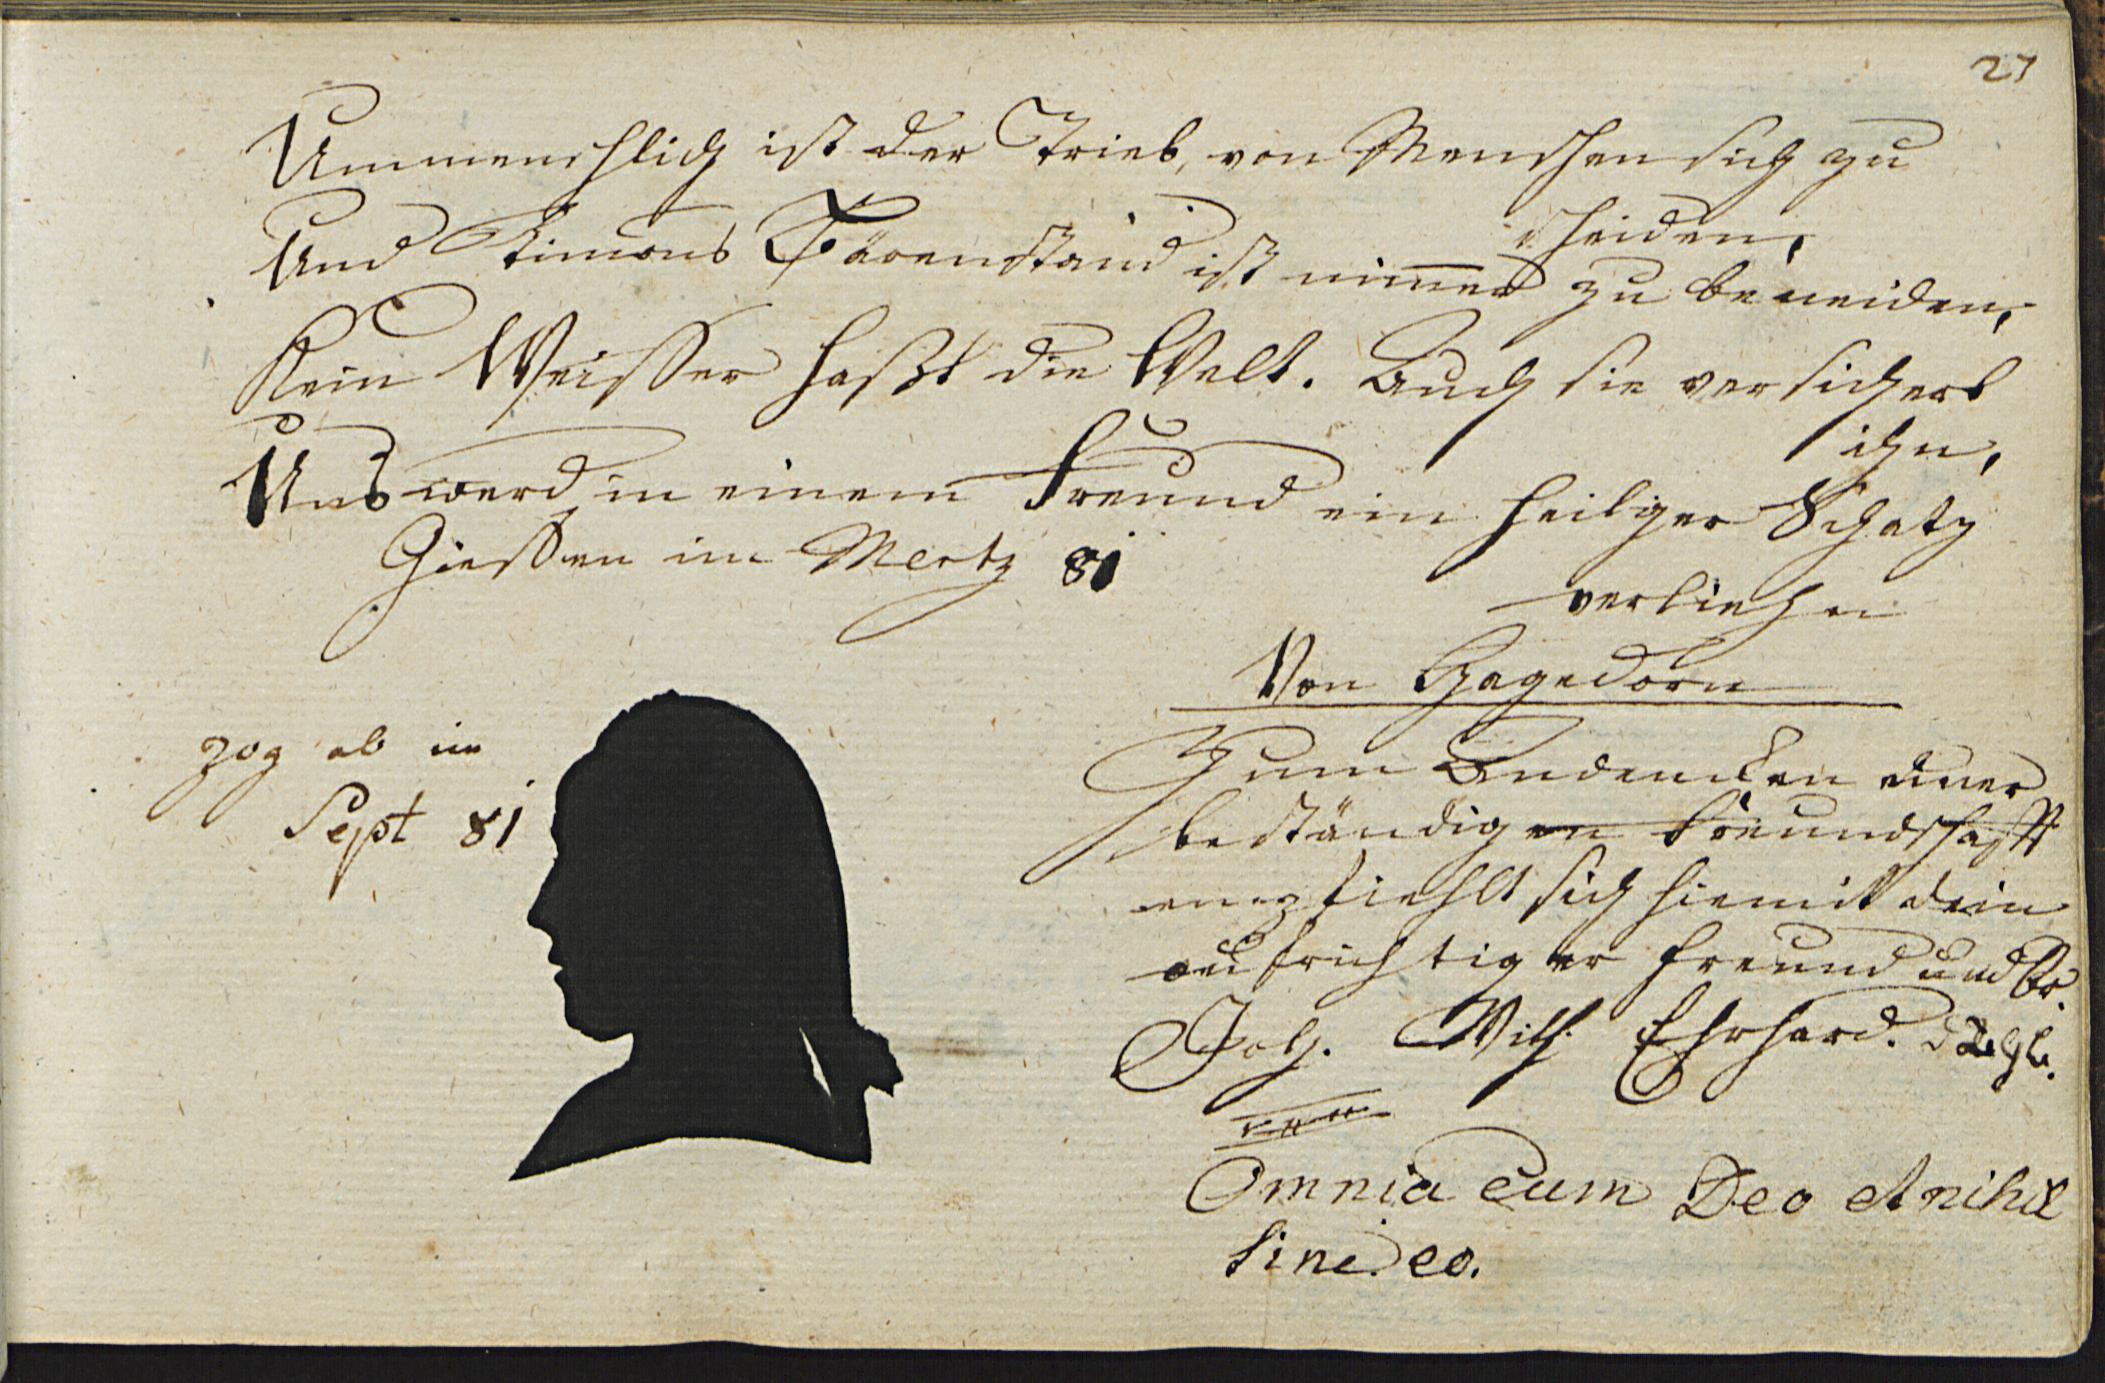 27
Unmenschlich ist der Trieb, von Menschen sich zu
scheiden,
Und Timons Bärenstand ist nimmer zu beneiden,
Kein Weisser haßt die Welt. Auch sie versichert
ihn,
Uns werd in einem Freund ein heilger Schatz
verliehen
Giessen im Mertz 81
Von Hagedorn
zog ab im
Sept 81
Zum Andencken einer
beständigen Freundschafft
empfiehlt sich hiemit dein
aufrichtiger Freund und Br.
Joh. Wilh. Ehrhard. d
Omnia cum Deo et nihil
sine eo.